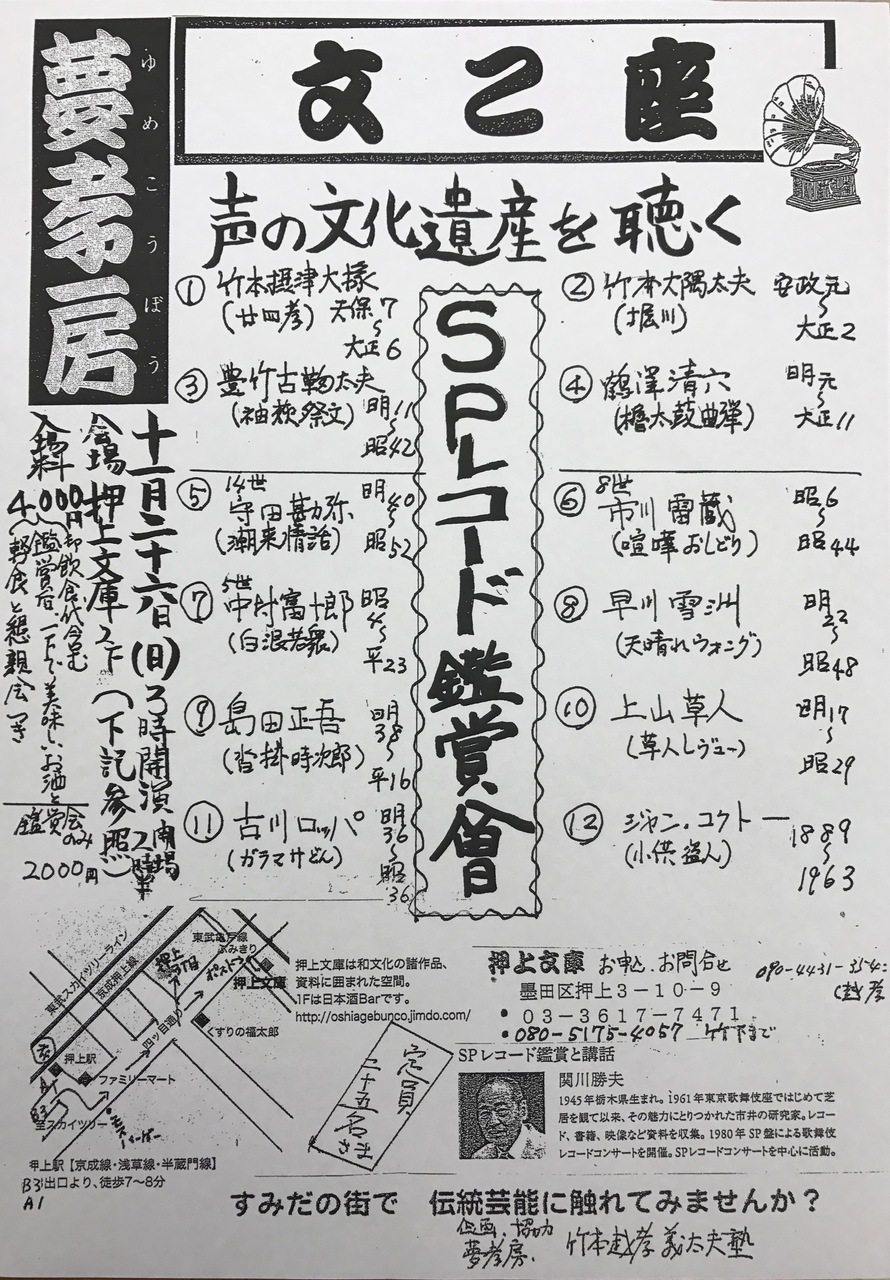 夢孝房
ゆめこうぼう
文こ座
声の文化遺産を聴く
SPレコード鑑賞會
① 竹本摂津大掾
(廿四孝) 天保7〜大正6
② 竹本大隅太夫 安政元〜大正2
(堀川)
③ 豊竹古靱太夫
(袖萩祭文) 明11〜昭42
④ 鶴澤清六 明元〜大正11
(櫓太鼓曲弾)
⑤ 14世 守田勘弥 明40〜昭52
(潮来情話)
⑥ 8世 市川雷蔵 昭6〜昭44
(喧嘩おしどり)
⑦ 5世 中村富十郎 昭4〜平23
(白浪若衆)
⑧ 早川雪洲 明22〜昭48
(天晴れウォング)
⑨ 島田正吾 明38〜平16
(沓掛時次郎)
⑩ 上山草人 明17〜昭29
(草人レヴュー)
⑪ 古川ロッパ 明36〜昭36
(ガラマサどん)
⑫ ジャン・コクトー 1889〜1963
(小供盗人)
十一月二十六日(日)3時開演 開場2時半
会場 押上文庫2F(下記参照)
入場料
4000円 飲食代含む
鑑賞后、一Fで美味しいお酒と
軽食と懇親会つき
鑑賞会のみ
2000円
東武スカイツリーライン
京成押上線
東武亀戸線
ふみきり
押上3丁目
ポスト
押上文庫
四ッ目通り
くすりの福太郎
押上駅
ファミリーマート
B3
A1
至スカイツリー
押上駅【京成線・浅草線・半蔵門線】
B3出口より、徒歩7〜8分
A1
押上文庫は和文化の諸作品、
資料に囲まれた空間。
1Fは日本酒Barです。
http://oshiagebunco.jimdo.com/
定員
二十五名さま
押上文庫 お申込.お問合せ
墨田区押上3-10-9
・03-3617-7471
・080-5175-4057 竹下まで
090-4431-
(越孝
SPレコード鑑賞と講話
関川勝夫
1945年栃木県生まれ。1961年東京歌舞伎座ではじめて芝
居を観て以来、その魅力にとりつかれた市井の研究家。レコー
ド、書籍、映像など資料を収集。1980年SP盤による歌舞伎
レコードコンサートを開催。SPレコードコンサートを中心に活動。
すみだの街で 伝統芸能に触れてみませんか？
企画、協力
夢孝房、 竹本越孝 義太夫塾